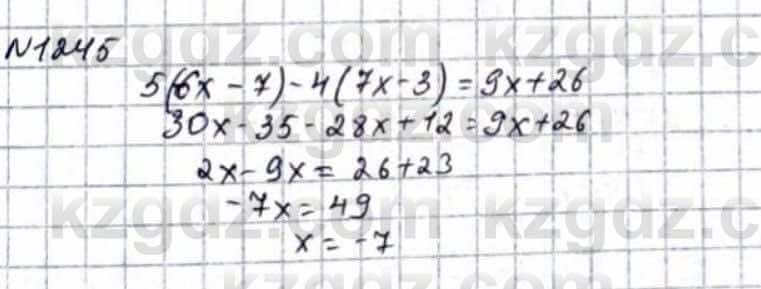 N1245
5(6x - 7) - 4(7x - 3) = 9x + 26
30x - 35 - 28x + 12 = 9x + 26
2x - 9x = 26 + 23
-7x = 49
x = -7
kzgdz.com